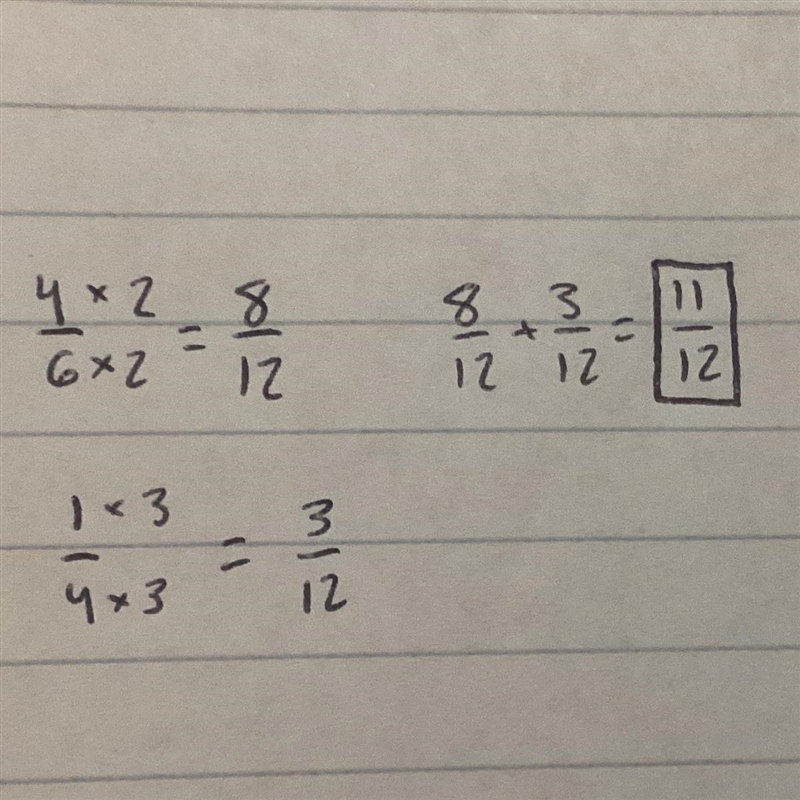 4 × 2 / 6 × 2 = 8/12
8/12 + 3/12 = 11/12
1 × 3 / 4 × 3 = 3/12